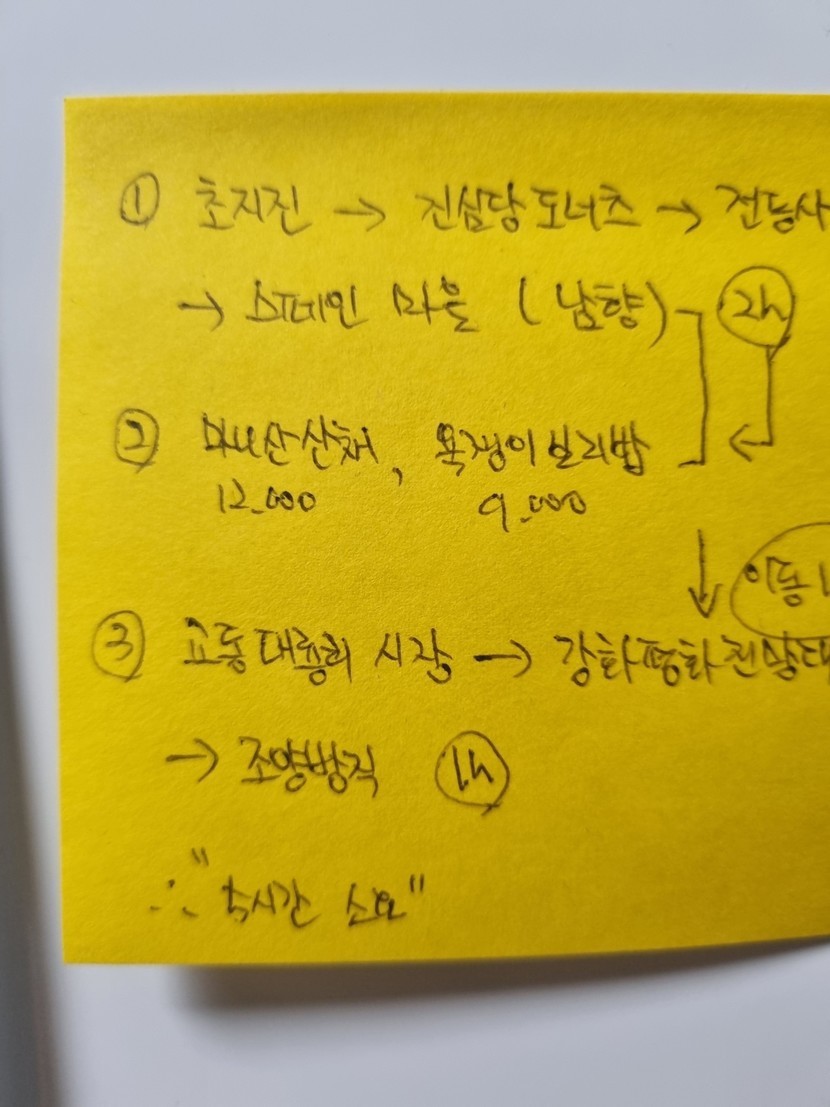 ① 초지진 → 진심당 도너츠 → 전등사
→ 스페인 마을 (남향) 2h
② 마니산산채, 욕쟁이보리밥
12.000 9.000
↓ 이동
③ 교동대룡리 시장 → 강화평화전망대
→ 조양방직 1h
∴ " 시간 소요"